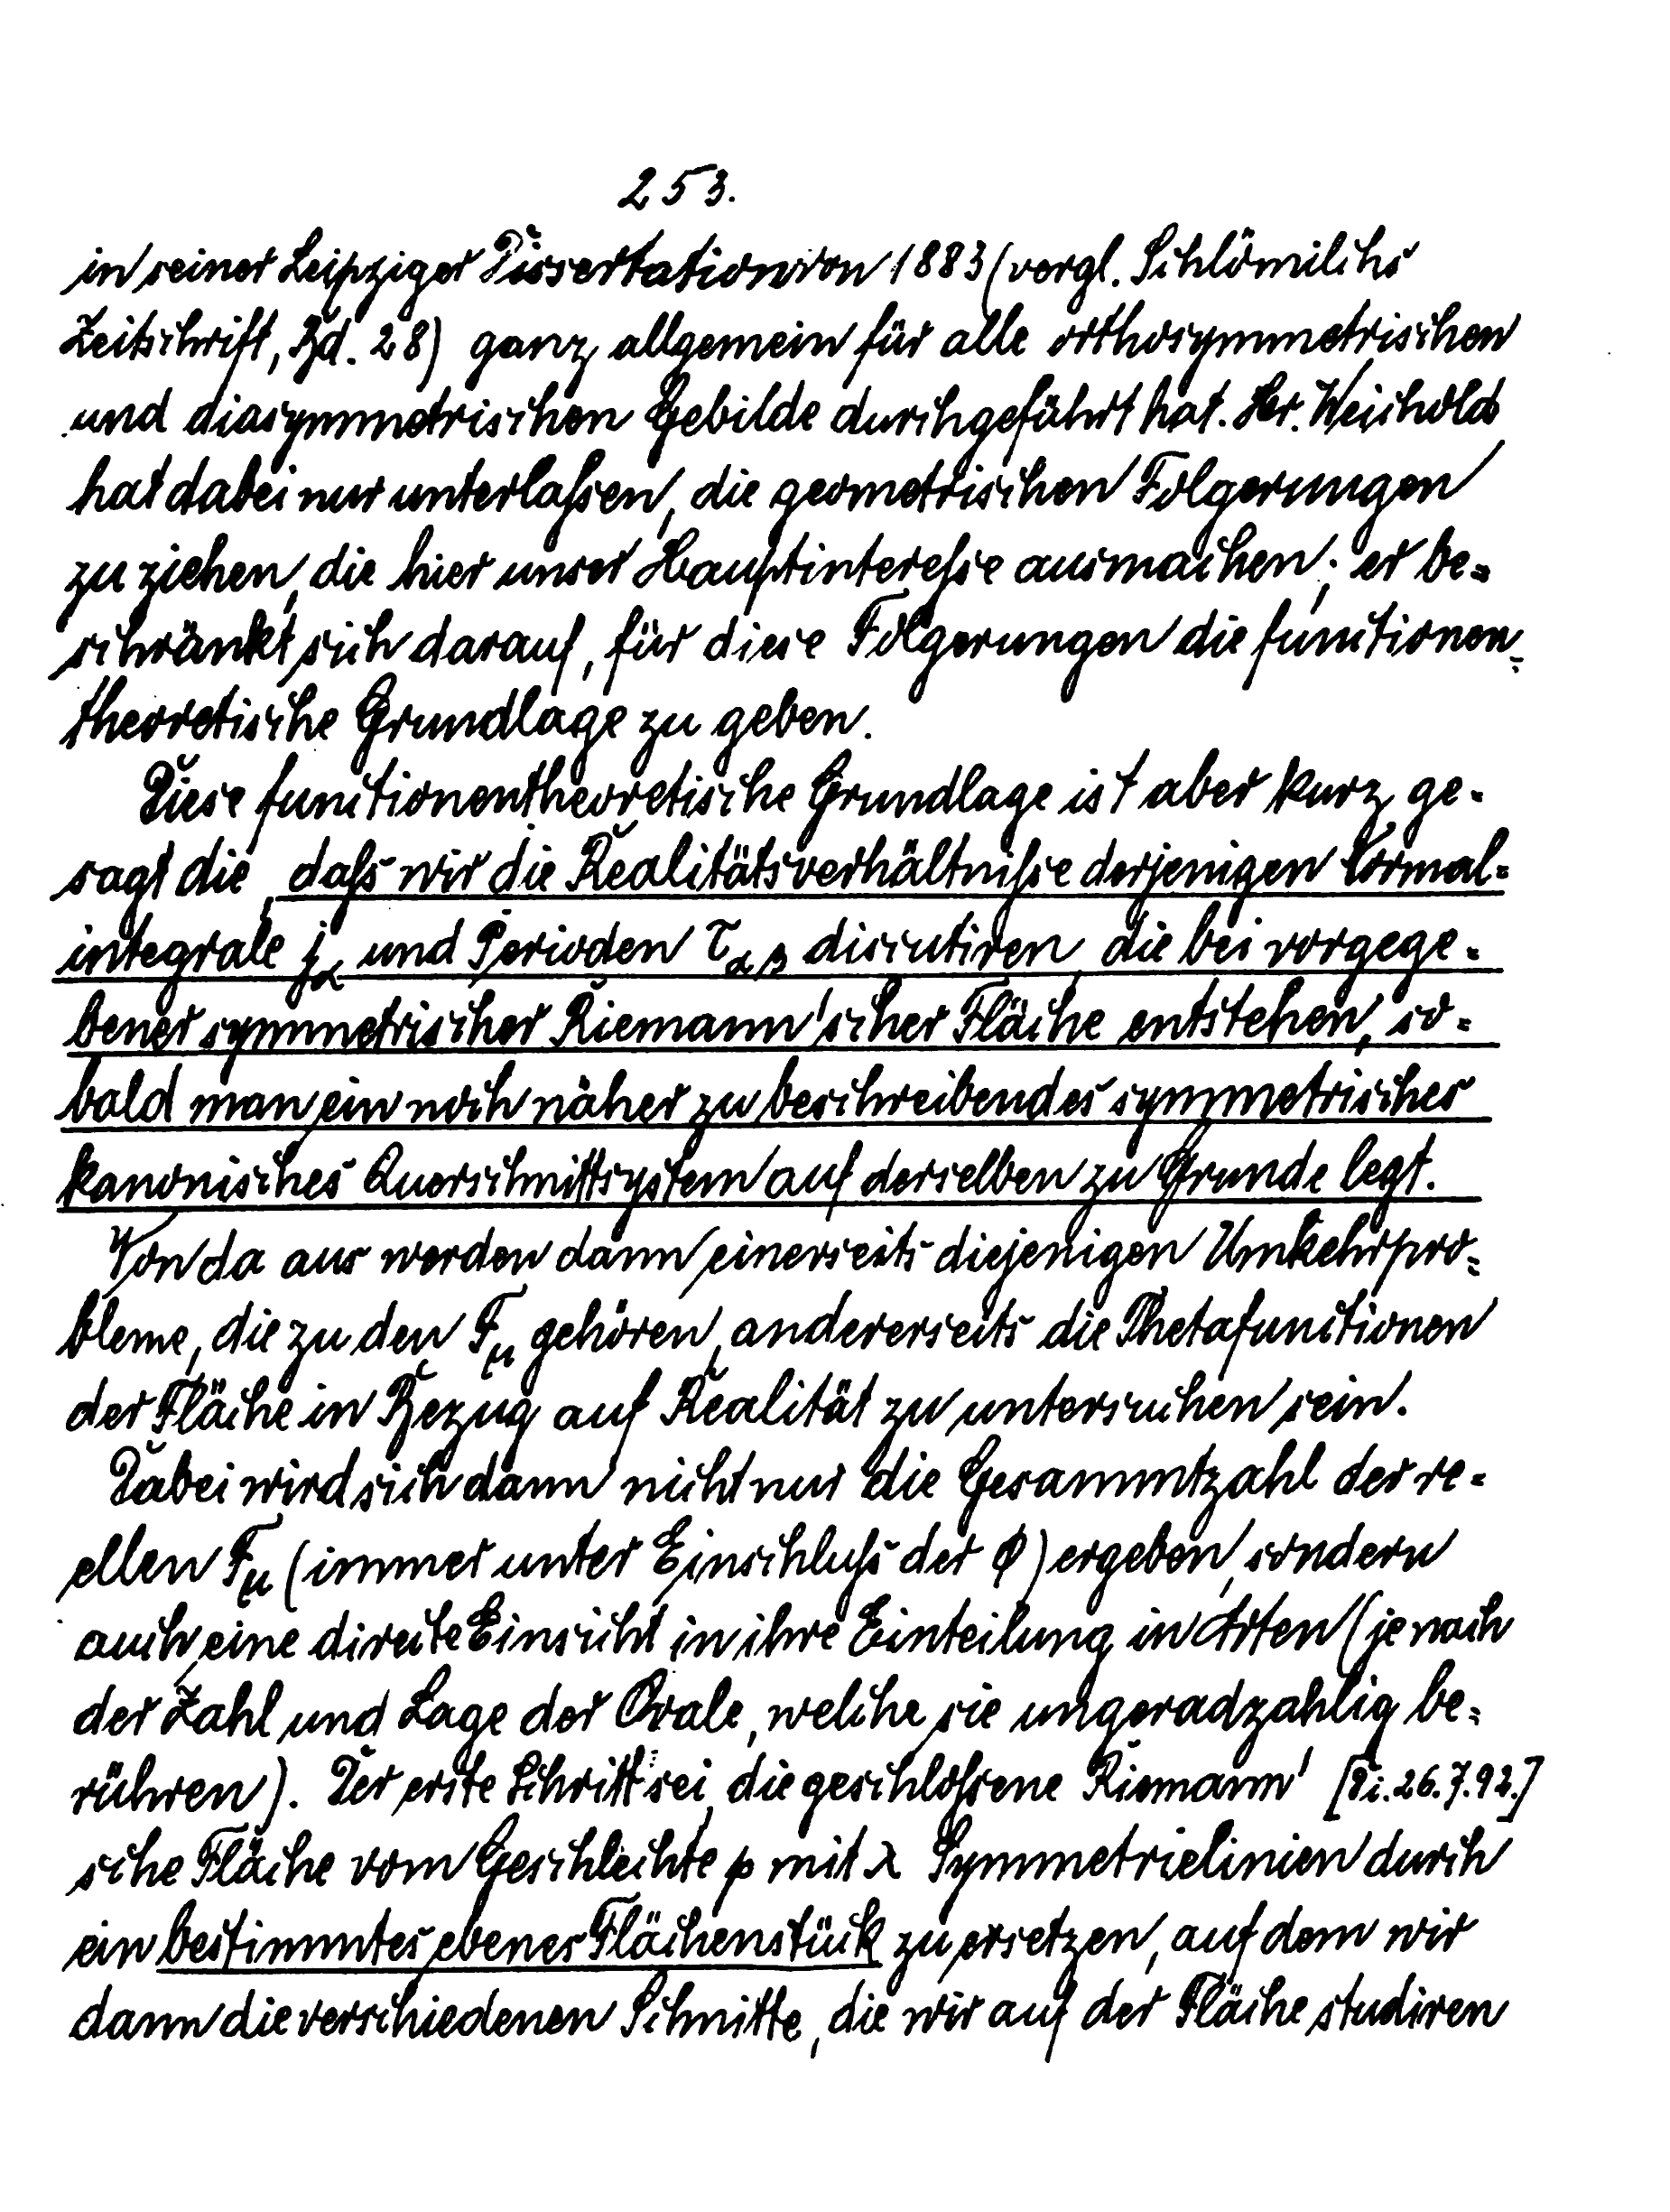 253.
in seiner Leipziger Dissertation von 1883 (vergl. Schlömilchs
Zeitschrift, Bd. 28) ganz allgemein für alle orthosymmetrischen
und diasymmetrischen Gebilde durchgeführt hat. Hr. Weichold
hat dabei nur unterlaßen, die geometrischen Folgerungen
zu ziehen, die hier unser Hauptintereße ausmachen; er be-
schränkt sich darauf, für diese Folgerungen die functionen-
theoretische Grundlage zu geben.
Diese functionentheoretische Grundlage ist aber kurz ge-
sagt die, daß wir die Realitätsverhältniße derjenigen Normal-
integrale j_α und Perioden τ_αβ discutiren, die bei vorgege-
bener symmetrischer Riemann'scher Fläche entstehen, so-
bald man ein noch näher zu beschreibendes symmetrisches
kanonisches Querschnittsystem auf derselben zu Grunde legt.
Von da aus werden dann einerseits diejenigen Umkehrpro-
bleme, die zu den F_μ gehören, andererseits die Thetafunctionen
der Fläche in Bezug auf Realität zu untersuchen sein.
Dabei wird sich dann nicht nur die Gesammtzahl der re-
ellen F_μ (immer unter Einschluß der Φ) ergeben, sondern
auch eine directe Einsicht in ihre Einteilung in Arten (je nach
der Zahl und Lage der Ovale, welche sie ungeradzahlig be-
rühren). Der erste Schritt sei, die geschloßene Riemann' [Di. 26.7.92.]
sche Fläche vom Geschlechte p mit λ Symmetrielinien durch
ein bestimmtes ebenes Flächenstück zu ersetzen, auf dem wir
dann die verschiedenen Schnitte, die wir auf der Fläche studiren